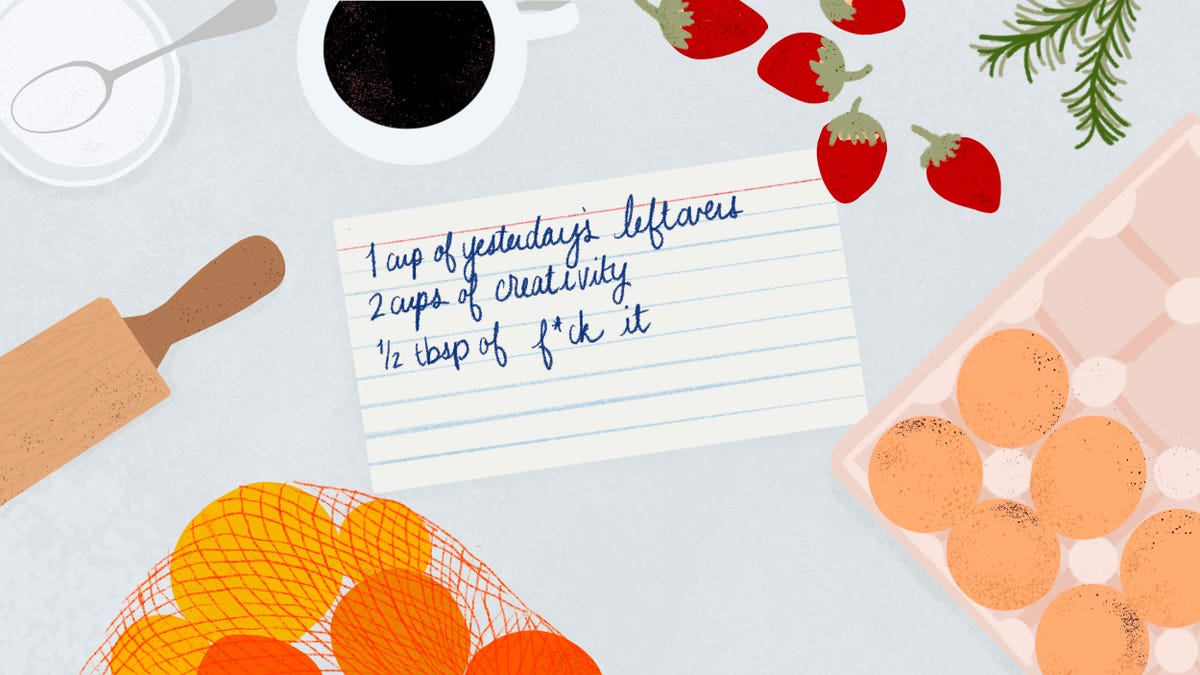 1 cup of yesterday's leftovers
2 cups of creativity
1/2 tbsp of f*ck it